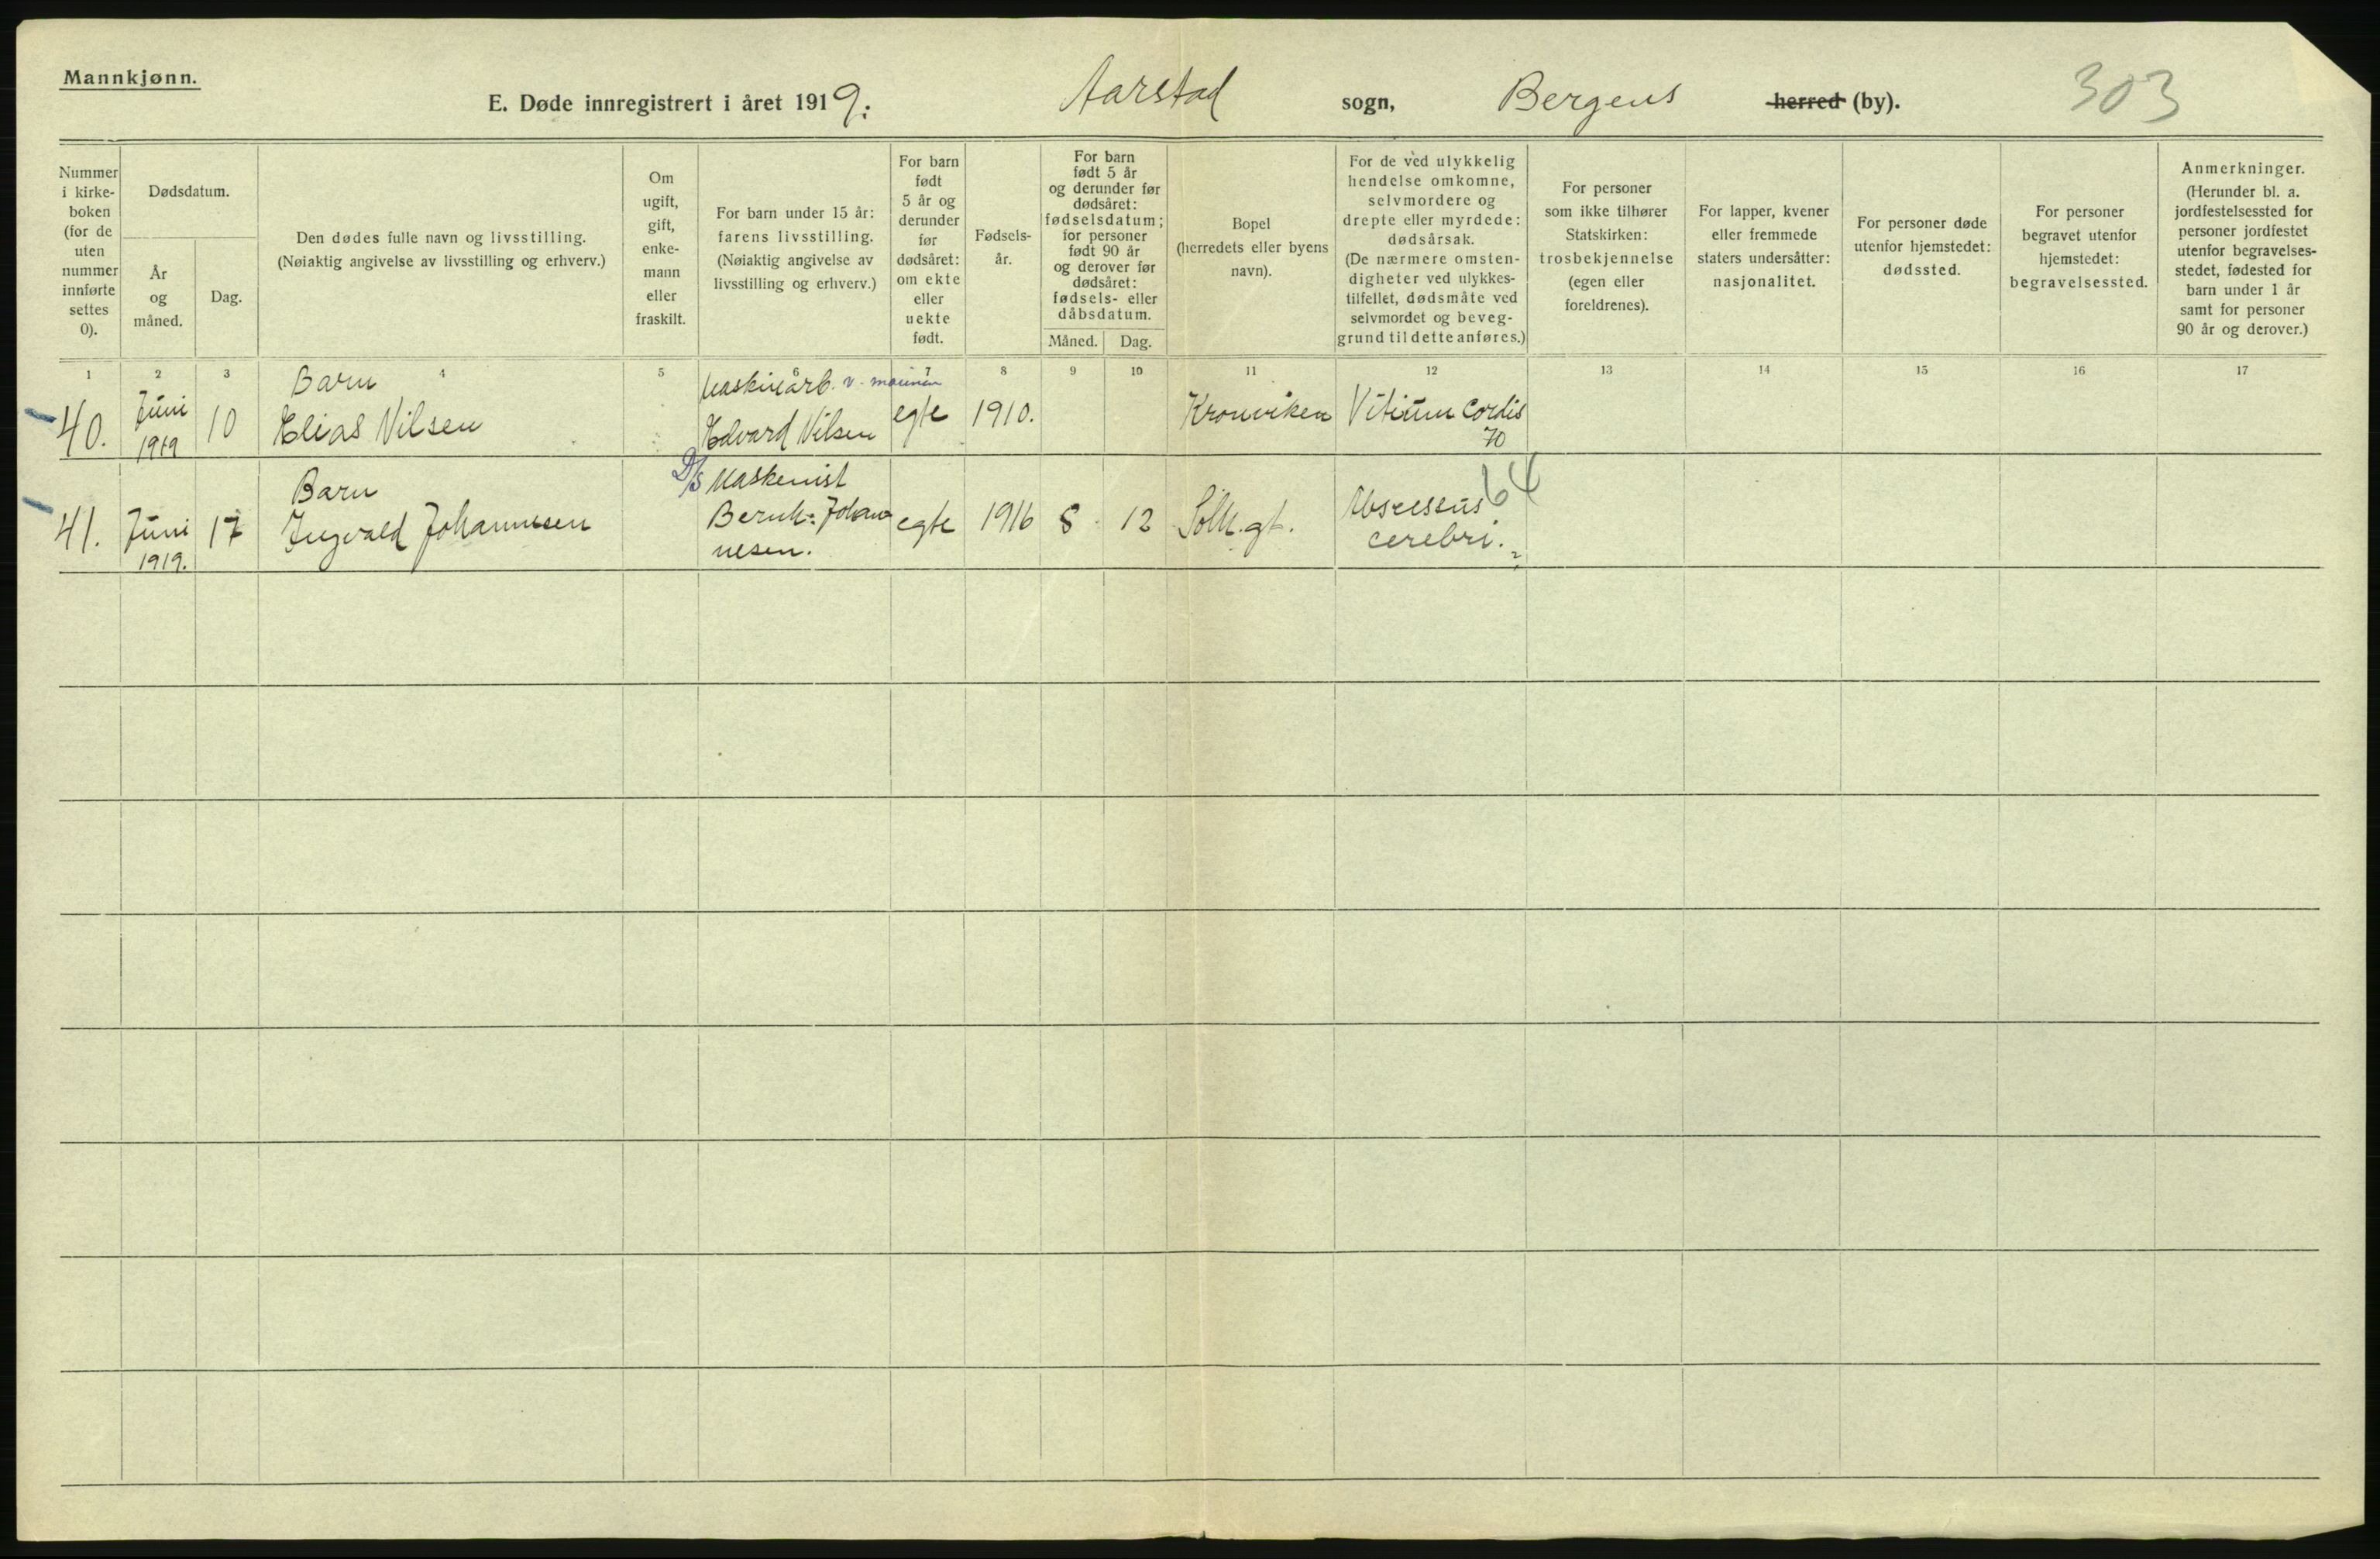 Mannkjønn.
E. Døde innregistrert i året 1919. Aarstad sogn, Bergens herred (by). 303
Nummer
i kirke-
boken
(for de
uten
nummer
innførte
settes
0).
Dødsdatum.
År
og
måned.
Dag.
Den dødes fulle navn og livsstilling.
(Nøiaktig angivelse av livsstilling og erhverv.)
Om
ugift,
gift,
enke-
mann
eller
fraskilt.
For barn under 15 år:
farens livsstilling.
(Nøiaktig angivelse av
livsstilling og erhverv.)
For barn
født
5 år og
derunder
før
dødsåret:
om ekte
eller
uekte
født.
Fødsels-
år.
For barn
født 5 år
og derunder før
dødsåret:
fødselsdatum;
for personer
født 90 år
og derover før
dødsåret:
fødsels- eller
dåbsdatum.
Måned. Dag.
Bopel
(herredets eller byens
navn).
For de ved ulykkelig
hendelse omkomne,
selvmordere og
drepte eller myrdede:
dødsårsak.
(De nærmere omsten-
digheter ved ulykkes-
tilfellet, dødsmåte ved
selvmordet og beveg-
grund til dette anføres.)
For personer
som ikke tilhører
Statskirken:
trosbekjennelse
(egen eller
foreldrenes).
For lapper, kvener
eller fremmede
staters undersåtter:
nasjonalitet.
For personer døde
utenfor hjemstedet:
dødssted.
For personer
begravet utenfor
hjemstedet:
begravelsessted.
Anmerkninger.
(Herunder bl. a.
jordfestelsessted for
personer jordfestet
utenfor begravelses-
stedet, fødested for
barn under 1 år
samt for personer
90 år og derover.)
1 2 3 4 5 6 7 8 9 10 11 12 13 14 15 16 17
40.
Juni
1919
10
Barn
Elias Nilsen
Maskinarb. v. marinen
Edvard Nilsen
egte
1910.
Kronviken
Vitium Cordis
70
41.
Juni
1919.
17
Barn
Ingvald Johannesen
D/S Maskinist
Bernh: Johan
nesen.
egte
1916
8
12
Solh.gt.
Abscessus 64
cerebri.